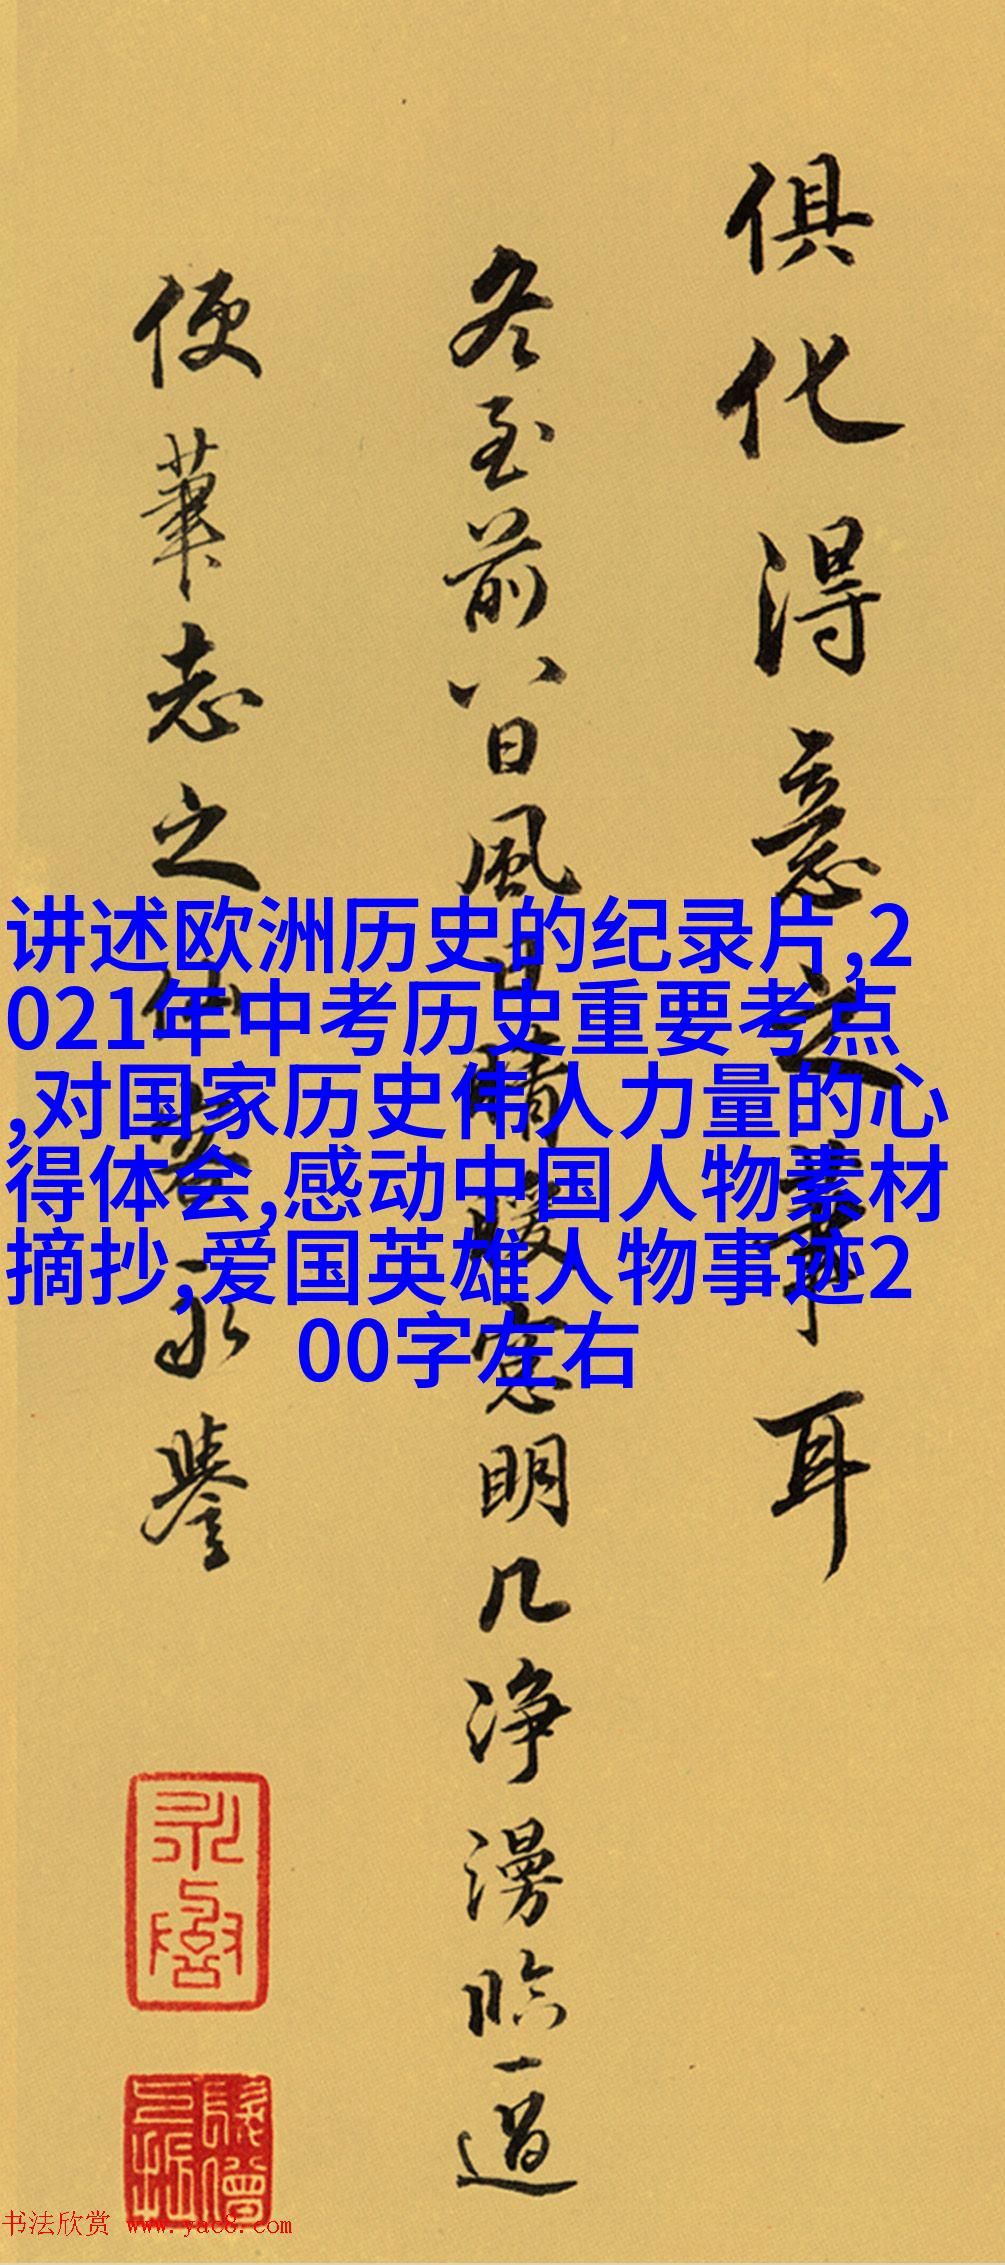 俱化得意之事耳
冬至前八日風日晴暖窓明几净漫臨一過
便筆志之
永譽
讲述欧洲历史的纪录片,2
021年中考历史重要考点
,对国家历史伟人力量的心
得体会,感动中国人物素材
摘抄,爱国英雄人物事迹2
00字左右
书法欣赏 www.yac8.com